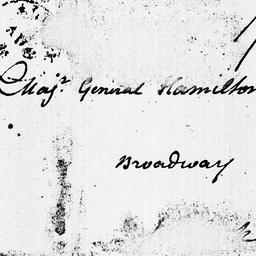 Majr General Hamilton
Broadway